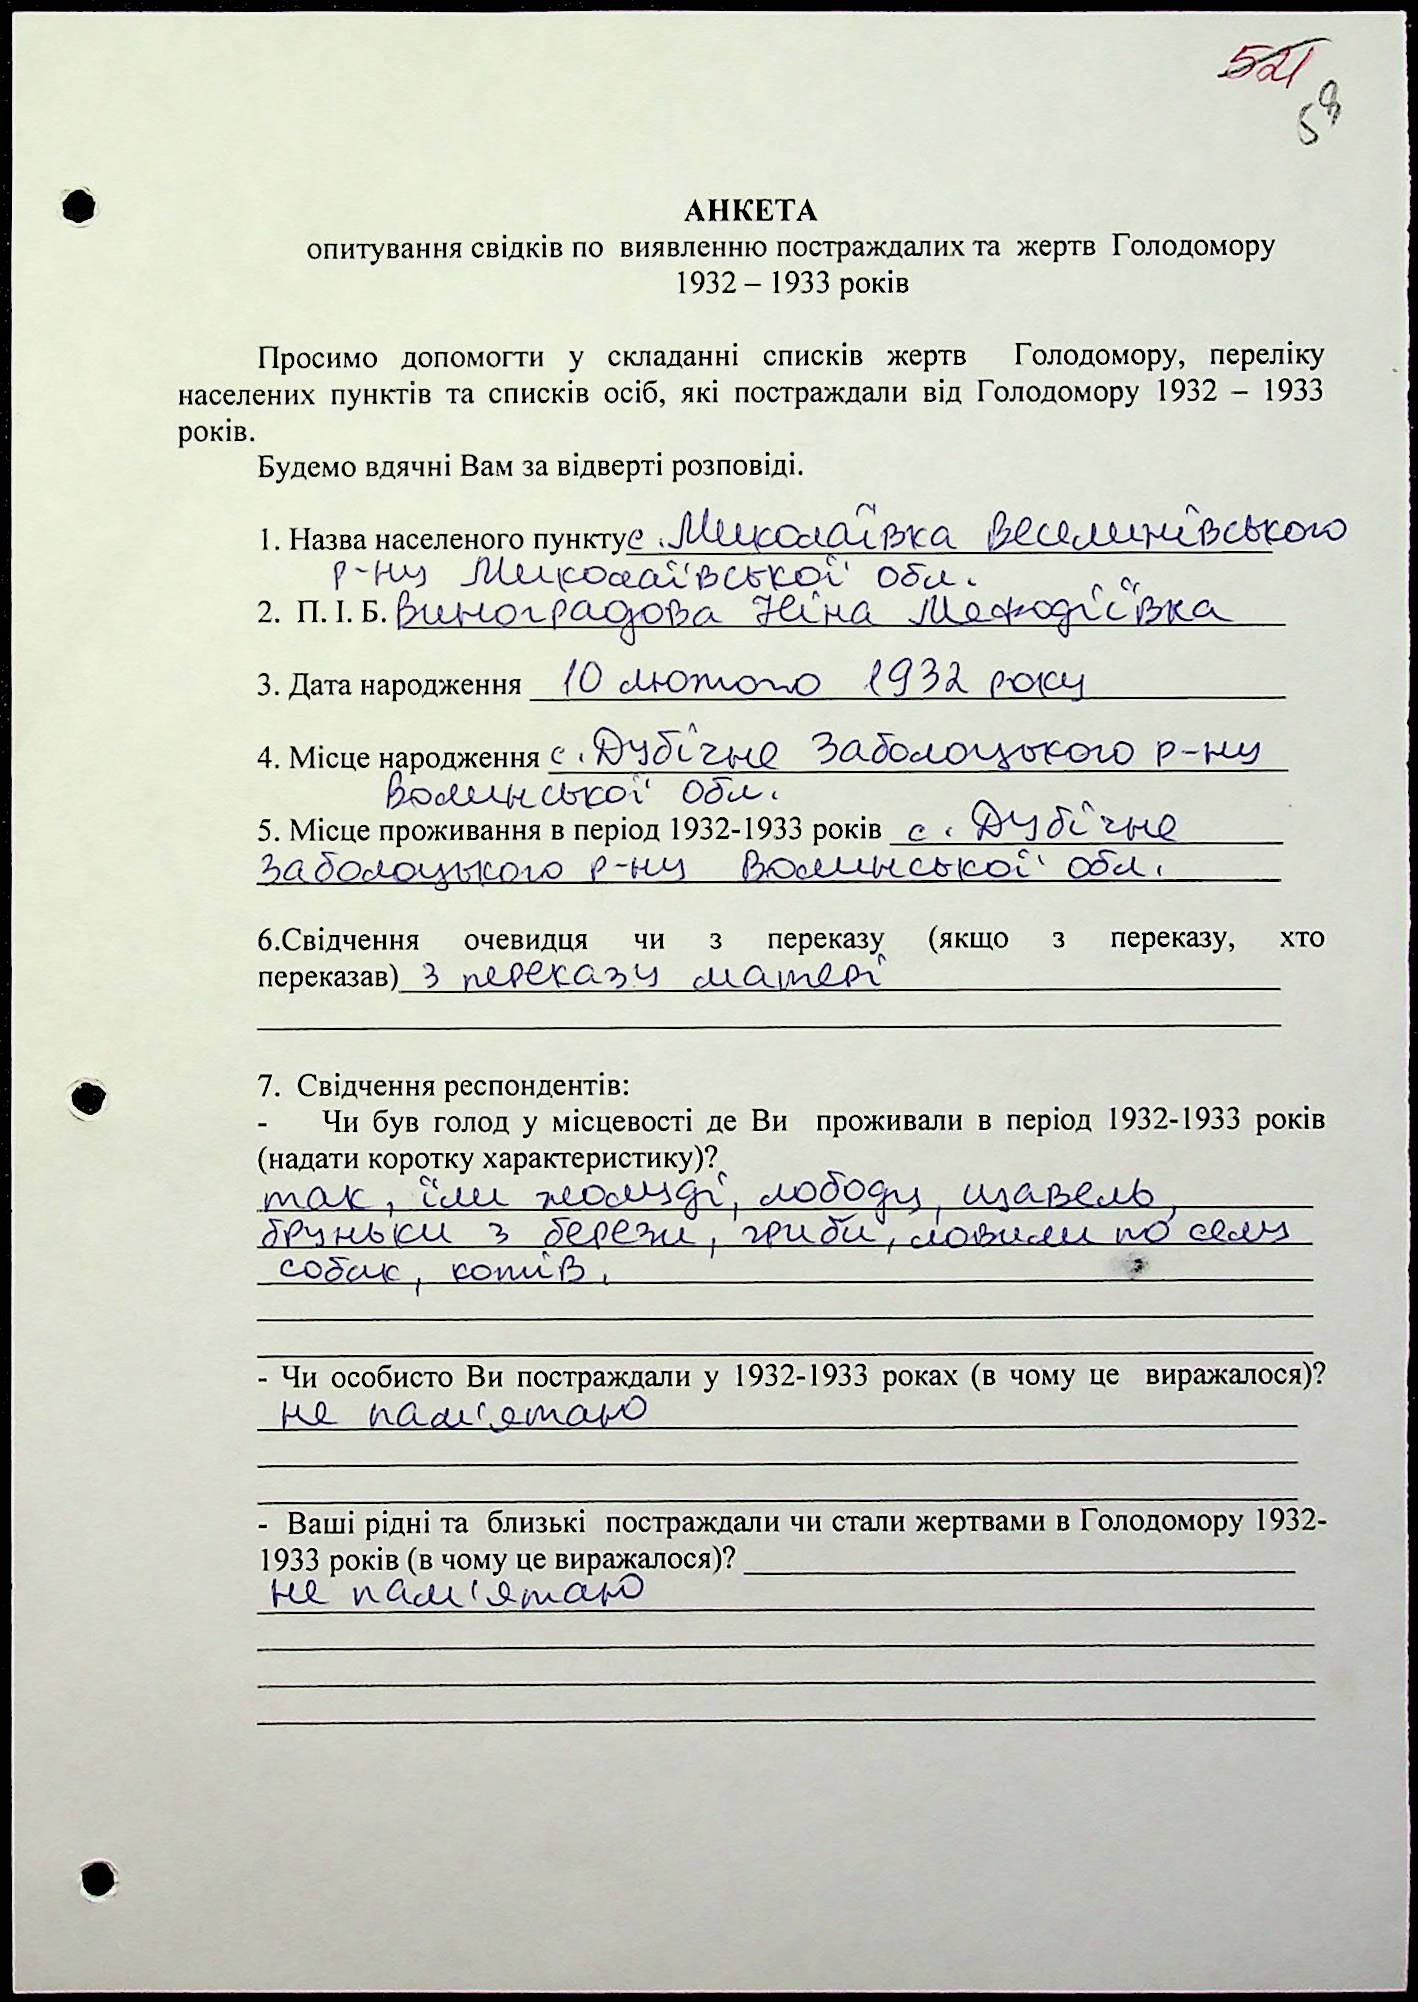 521
59
АНКЕТА
опитування свідків по виявленню постраждалих та жертв Голодомору
1932 – 1933 років
Просимо допомогти у складанні списків жертв Голодомору, переліку
населених пунктів та списків осіб, які постраждали від Голодомору 1932 – 1933
років.
Будемо вдячні Вам за відверті розповіді.
1. Назва населеного пункту с. Миколаївка Веселинівського
р-ну Миколаївської обл.
2. П. І. Б. Виноградова Ніна Мефодіївка
3. Дата народження 10 лютого 1932 року
4. Місце народження с. Дубічне Заболоцького р-ну
Волинської обл.
5. Місце проживання в період 1932-1933 років с. Дубічне
Заболоцького р-ну Волинської обл.
6.Свідчення очевидця чи з переказу (якщо з переказу, хто
переказав) з переказу матері
7. Свідчення респондентів:
- Чи був голод у місцевості де Ви проживали в період 1932-1933 років
(надати коротку характеристику)?
так, їли жолуді, лободу, щавель,
бруньки з берези, гриби, ловили по селу
собак, котів.
- Чи особисто Ви постраждали у 1932-1933 роках (в чому це виражалося)?
не пам'ятаю
- Ваші рідні та близькі постраждали чи стали жертвами в Голодомору 1932-
1933 років (в чому це виражалося)?
не пам'ятаю